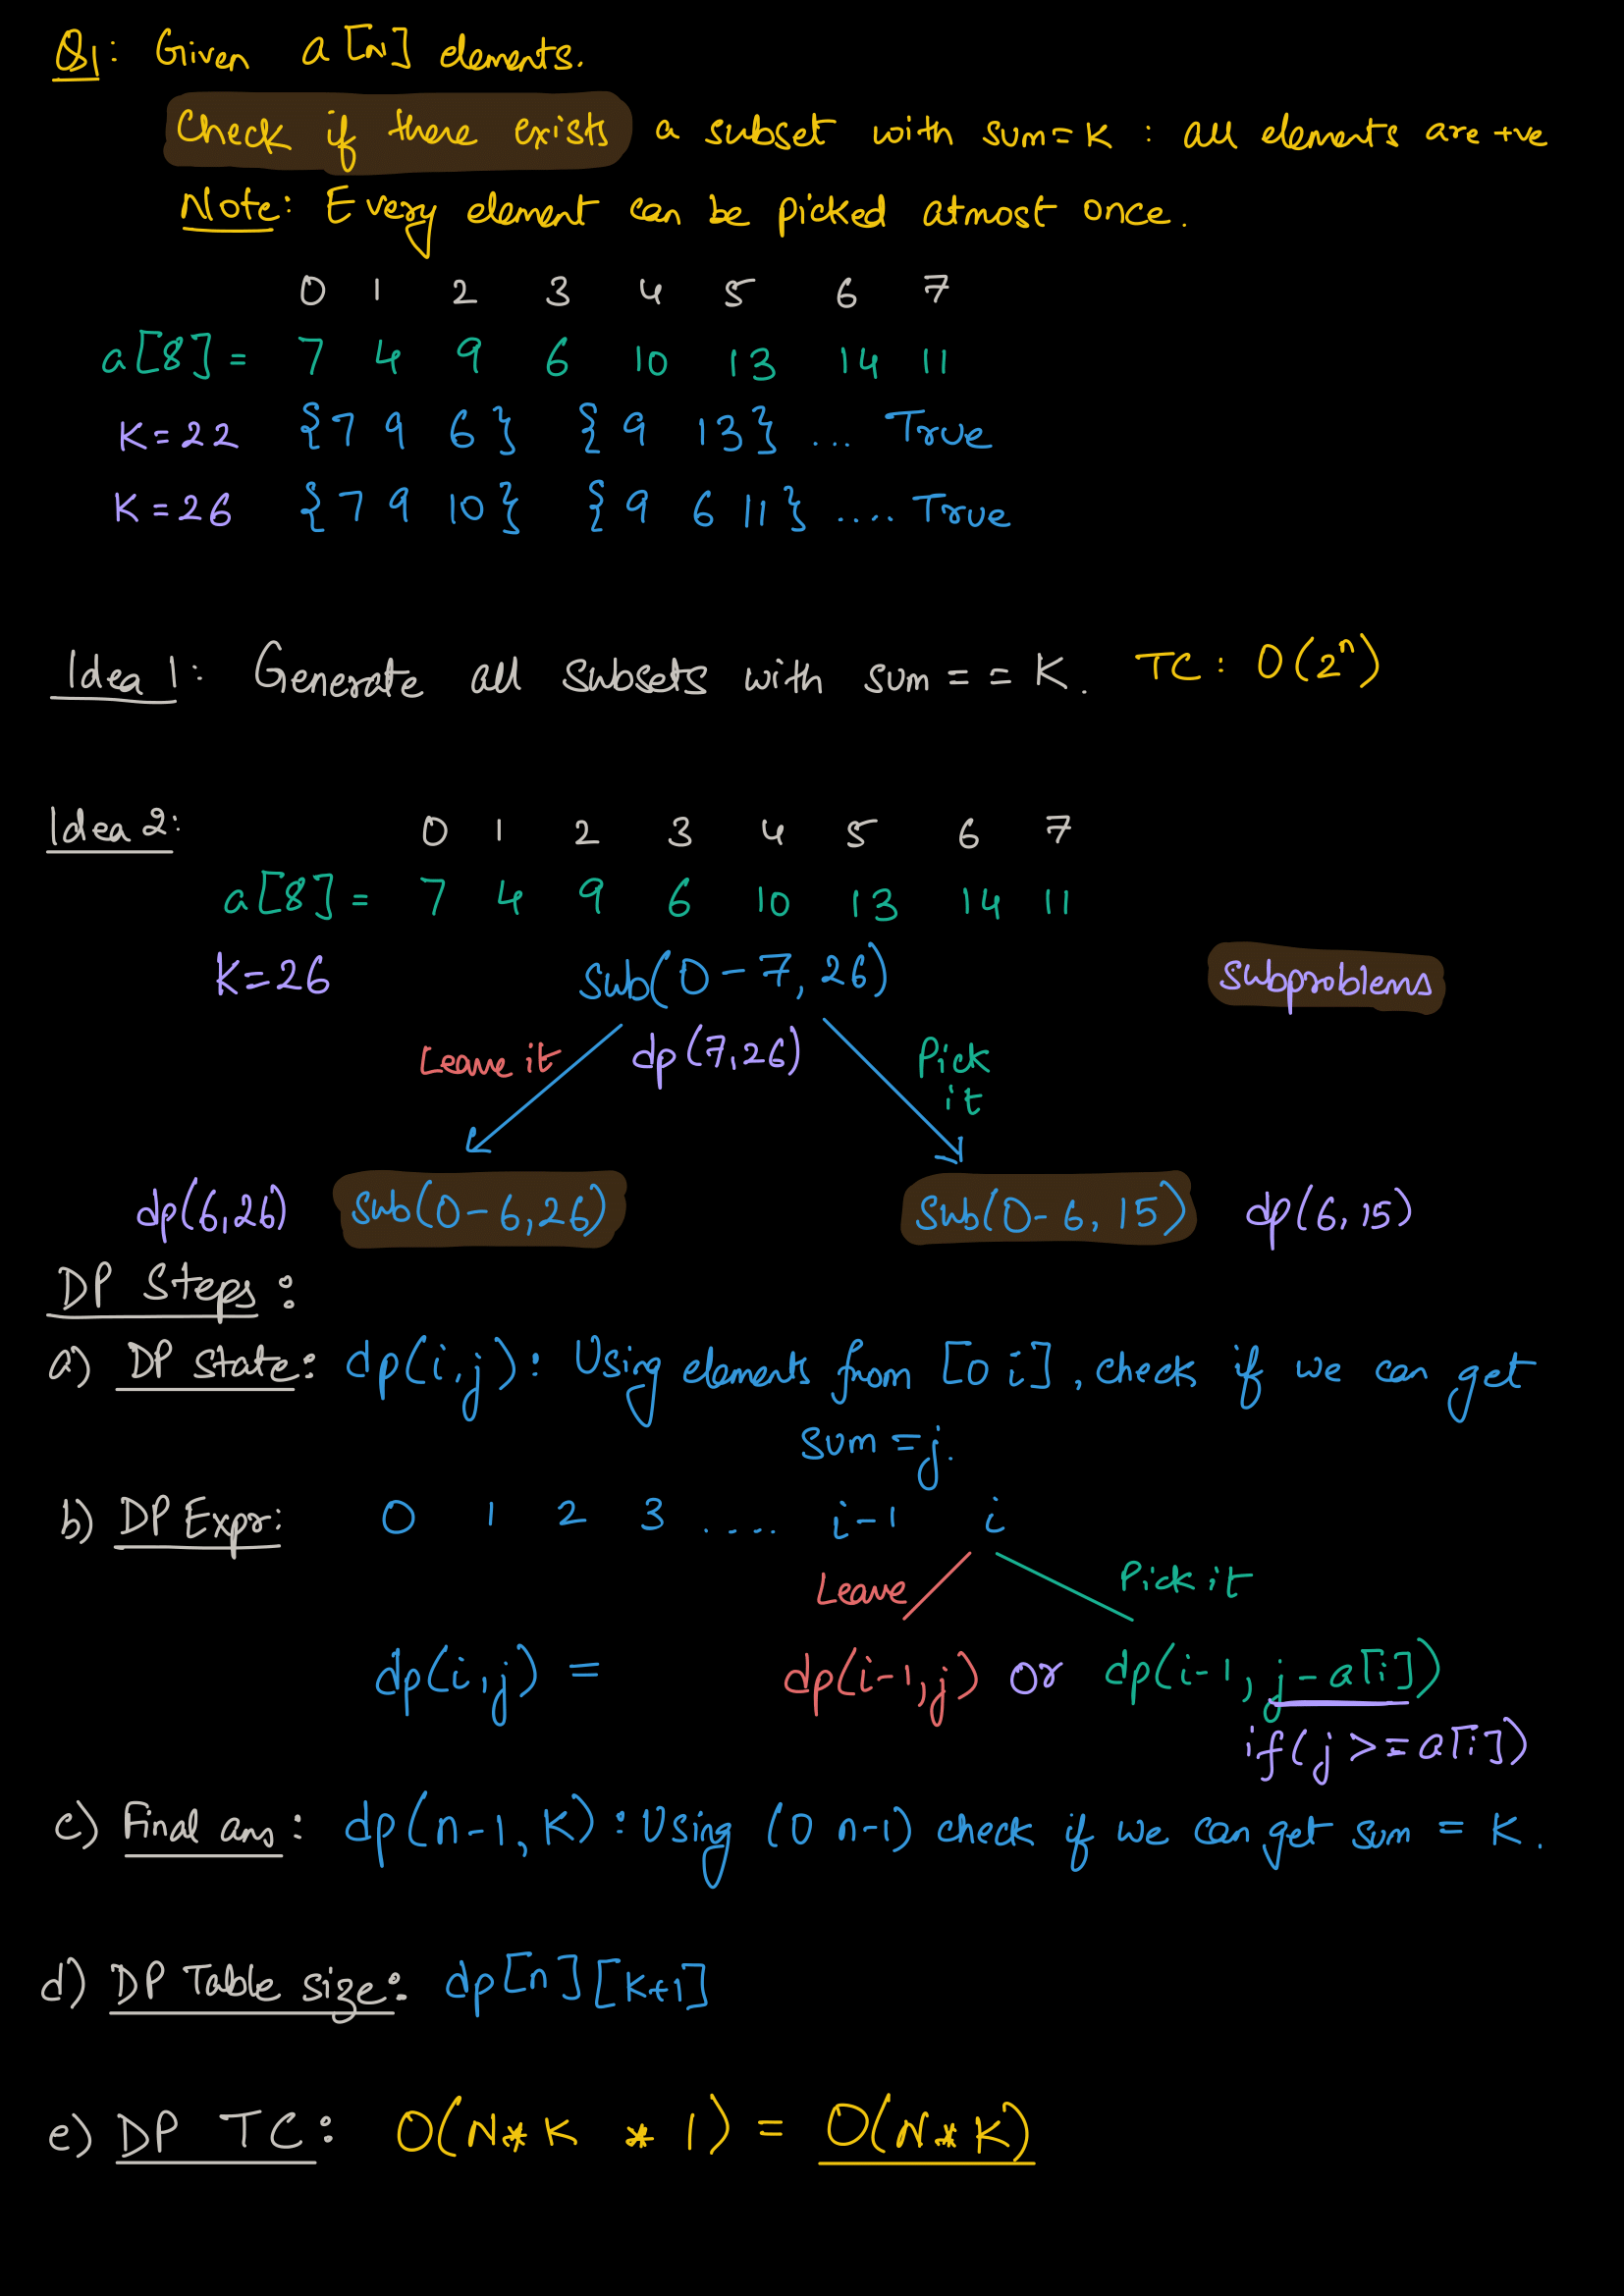 Q1: Given a[n] elements.
Check if there exists a subset with sum=K : all elements are +ve
Note: Every element can be picked atmost once.
0 1 2 3 4 5 6 7
a[8] = 7 4 9 6 10 13 14 11
K=22 {7 9 6} {9 13} ... True
K=26 {7 9 10} {9 6 11} .... True
Idea 1: Generate all subsets with sum == K. TC: O(2ⁿ)
Idea 2: 0 1 2 3 4 5 6 7
a[8] = 7 4 9 6 10 13 14 11
K=26 sub(0-7, 26) subproblems
Leave it dp(7,26) Pick
it
dp(6,26) sub(0-6,26) sub(0-6, 15) dp(6,15)
DP Steps:
a) DP state: dp(i,j): Using elements from [0 i], check if we can get
sum =j.
b) DP Expr: 0 1 2 3 .... i-1 i
Leave Pick it
dp(i,j) = dp(i-1,j) or dp(i-1, j-a[i])
if(j >= a[i])
c) Final ans: dp(n-1, K): Using (0 n-1) check if we can get sum = K.
d) DP Table size: dp[n][K+1]
e) DP TC: O(N*K * 1) = O(N*K)